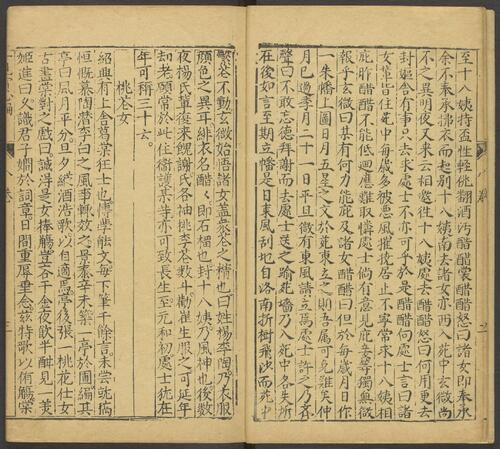 至十八姨持盃性輕佻翻酒污醋醋裳醋醋怒曰諸女即奉承
余不奉承拂衣而起別十八姨南去諸女亦西入苑中玄微尚
不之異明夜又來云相邀往十八姨處去醋醋怒曰何用更去
封姬舍有事只去求處士不亦可乎於是醋醋向處士言曰諸
女輩皆住苑中每歲多被惡風摧撓居止不寧常求十八姨相
庇昨醋醋不能低迴應難取憐處士倘有意見庇妾等獨無微
報乎玄微曰某有何力能庇及諸女醋醋曰但於每歲月日作
一朱幡上圖日月五星之文於苑東立之則吾屬可免難矣仲
月已過季月二十一日平旦微有東風請立焉處士許之乃齊
聲曰不敢忘德拜謝而去處士送之踰苑牆乃入苑中各失所
在後如言至期立幡是日東風刮地自洛南折樹飛沙而苑中
繁花不動玄微始悟諸女蓋眾花之精也曰姓楊李陶乃衣服
顏色之異耳緋衣名醋醋即石榴也封十八姨乃風神也後數
夜楊氏輩復來餽謝氏各袖桃李花數斗勸崔生服之可延年
却老願常於此住衛護某等亦可致長生至元和初處士猶在
年可稱三十云
桃花女
紹興有上舍葛棠狂士也博學能文每下筆千餘言未嘗
恒慨慕陶潛李白之風事輒效之景泰辛未築一亭於圃編其
亭曰風月平分旦夕縱酒浩歌以自適焉亭後張一桃花仕女
古畫棠對之戲曰誠得女捧觴豈吝千金夜飲半酣見一美
姬進曰久識君子嫺於詞章日間重辱垂念茲特歌以侑觴棠